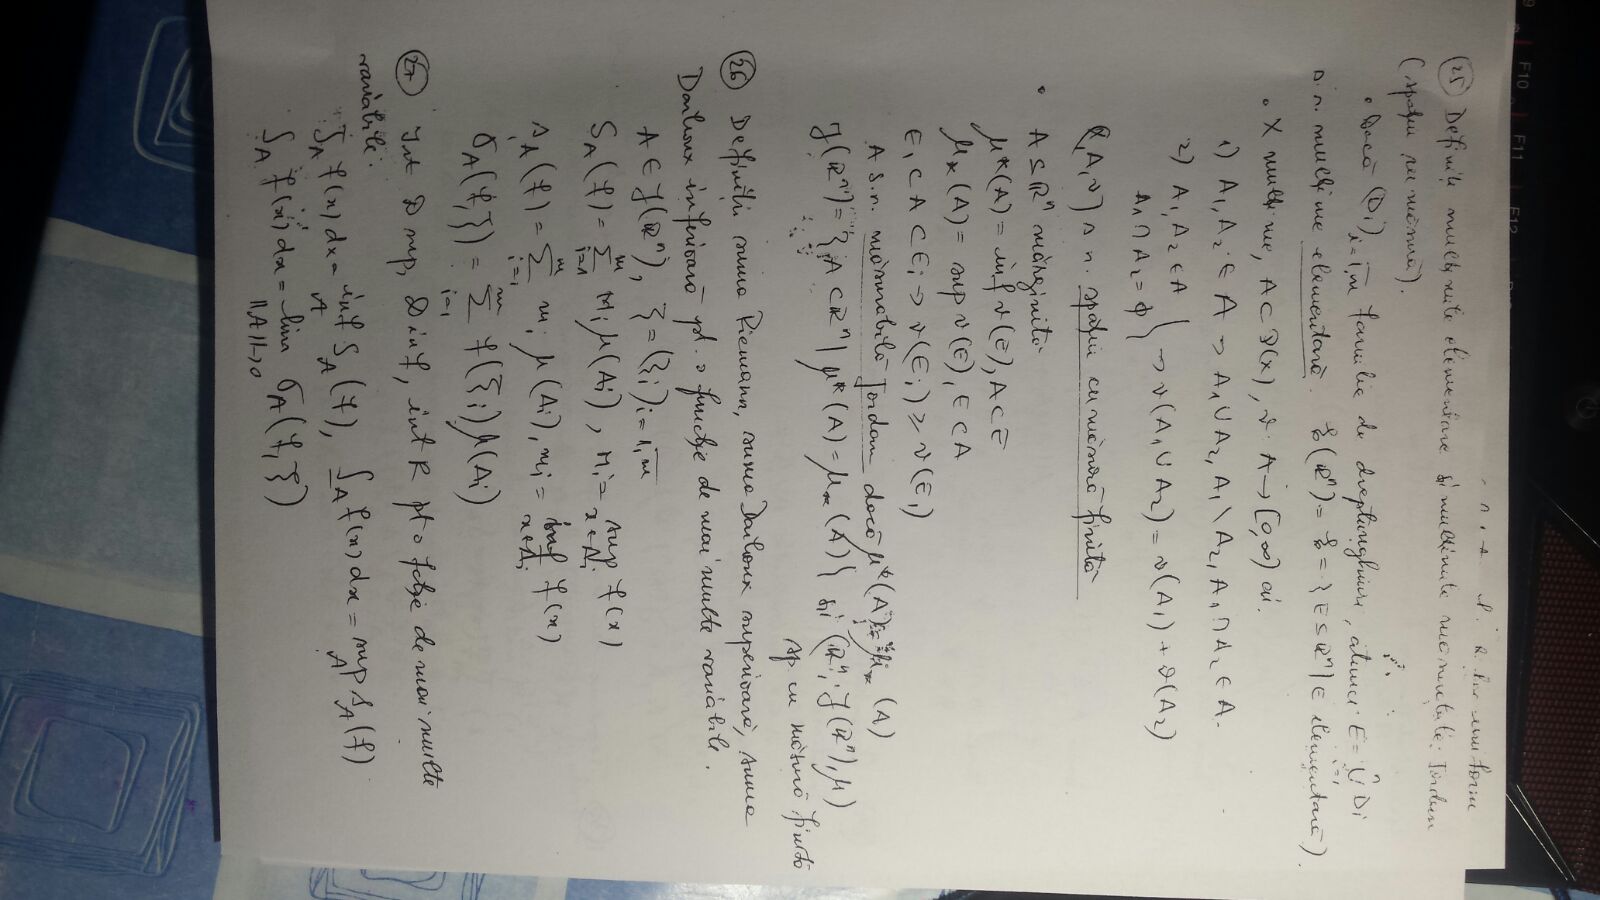 F10 F11 F12
uniform
(25) Definiți mulțimile elementare și mulțimile măsurabile Jordan
(spațiu cu măsură).
• Dacă (Di) i=1,n familie de dreptunghiuri, atunci E = ⋃ Di
s.n. mulțime elementară. ℰ(ℝⁿ) = ℰ = {E ⊆ ℝⁿ | E elementară}.
• X mulțime, A ⊂ P(X), ν: A → [0,∞) aî.
1) A₁, A₂ ∈ A → A₁ ∪ A₂, A₁ \ A₂, A₁ ∩ A₂ ∈ A.
2) A₁, A₂ ∈ A
A₁ ∩ A₂ = ∅ } → ν(A₁ ∪ A₂) = ν(A₁) + ν(A₂)
(X, A, ν) s.n. spațiu cu măsură finită
• A ⊆ ℝⁿ mărginită
μ*(A) = inf ν(E), A ⊂ E
μ⁎(A) = sup ν(E), E ⊂ A
E₁ ⊂ A ⊂ Eᵢ → ν(Eᵢ) ≥ ν(E₁)
A s.n. măsurabilă Jordan dacă μ*(A) = μ⁎(A)
J(ℝⁿ) = {A ⊂ ℝⁿ | μ*(A) = μ⁎(A)} și (ℝⁿ, J(ℝⁿ), μ)
sp cu măsură finită
(26) Definiții suma Riemann, suma Darboux superioară, suma
Darboux inferioară pt. o funcție de mai multe variabile.
A ∈ J(ℝⁿ), ξ = (ξᵢ) i=1,m
S_A(f) = ∑_{i=1}^{m} Mᵢ μ(Aᵢ), Mᵢ = sup_{x∈Aᵢ} f(x)
s_A(f) = ∑_{i=1}^{m} mᵢ μ(Aᵢ), mᵢ = inf_{x∈Aᵢ} f(x)
σ_A(f, ξ) = ∑_{i=1}^{m} f(ξᵢ) μ(Aᵢ)
(27) Int D sup, D inf, int R pt o fcție de mai multe
variabile.
∫̅_A f(x) dx = inf_A S_A(f), ∫̲_A f(x) dx = sup_A s_A(f)
∫_A f(x) dx = lim_{||A||→0} σ_A(f, ξ)